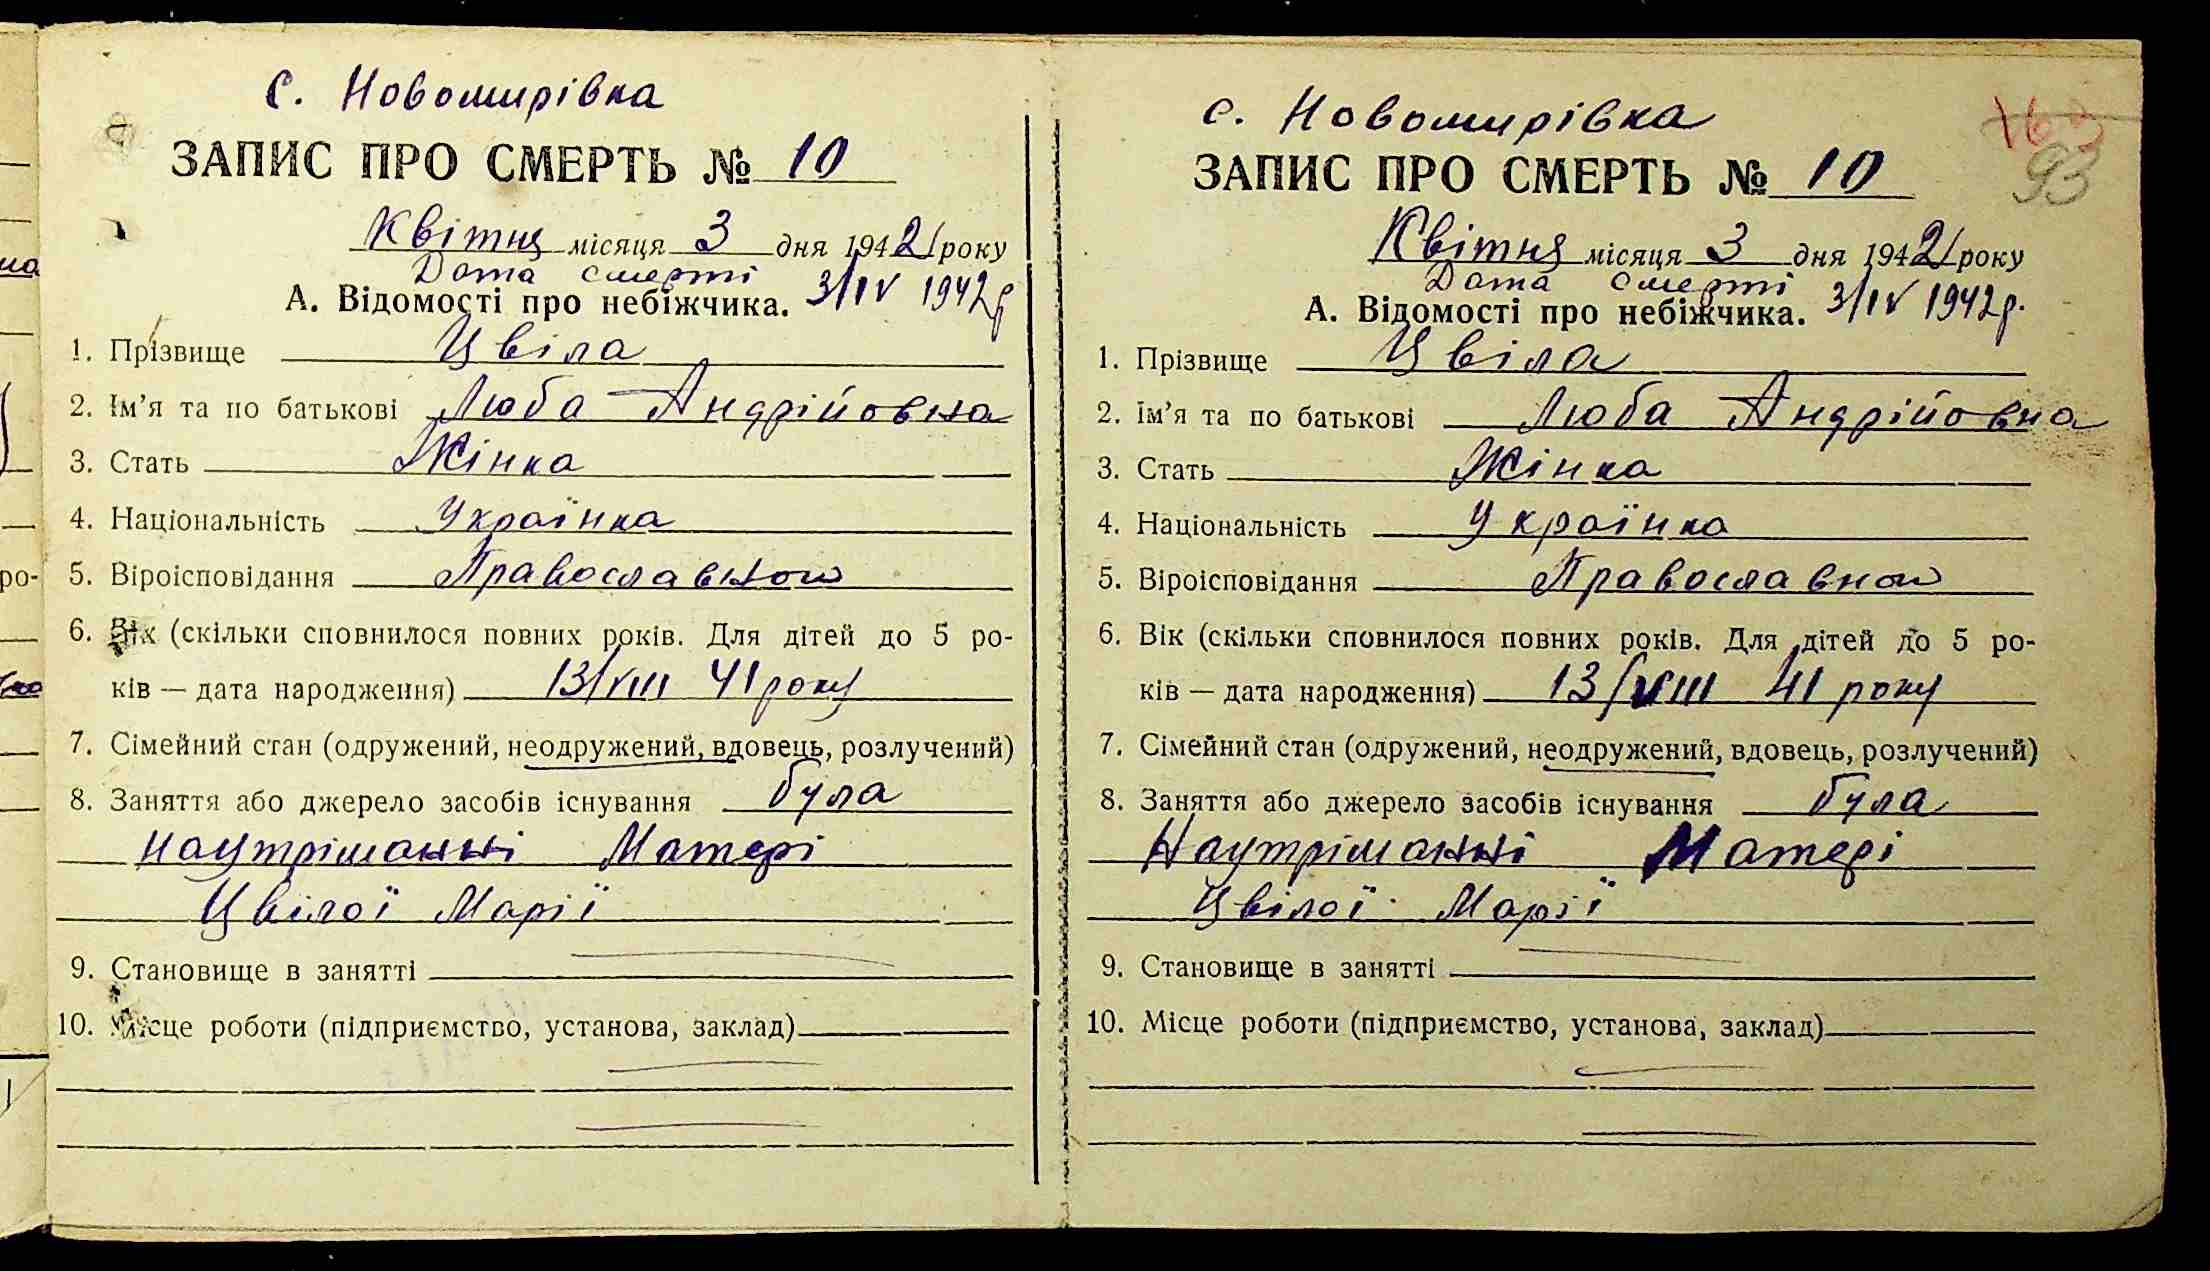 с. Новомирівка
ЗАПИС ПРО СМЕРТЬ № 10
Квітня місяця 3 дня 1942 року
Дата смерті
А. Відомості про небіжчика. 3/IV 1942 р
1. Прізвище Цвіла
2. Ім'я та по батькові Люба Андрійовна
3. Стать Жінка
4. Національність Українка
5. Віроісповідання Православною
6. Вік (скільки сповнилося повних років. Для дітей до 5 ро-
ків — дата народження) 13/VIII 41 року
7. Сімейний стан (одружений, неодружений, вдовець, розлучений)
8. Заняття або джерело засобів існування була
наутріманні Матері
Цвілої Марії
9. Становище в занятті
10. Місце роботи (підприємство, установа, заклад)
с. Новомирівка
163
93
ЗАПИС ПРО СМЕРТЬ № 10
Квітня місяця 3 дня 1942 року
Дата смерті
А. Відомості про небіжчика. 3/IV 1942 р.
1. Прізвище Цвіла
2. Ім'я та по батькові Люба Андрійовна
3. Стать Жінка
4. Національність Українка
5. Віроісповідання Православною
6. Вік (скільки сповнилося повних років. Для дітей до 5 ро-
ків — дата народження) 13/VIII 41 року
7. Сімейний стан (одружений, неодружений, вдовець, розлучений)
8. Заняття або джерело засобів існування була
Наутріманні Матері
Цвілої Марії
9. Становище в занятті
10. Місце роботи (підприємство, установа, заклад)